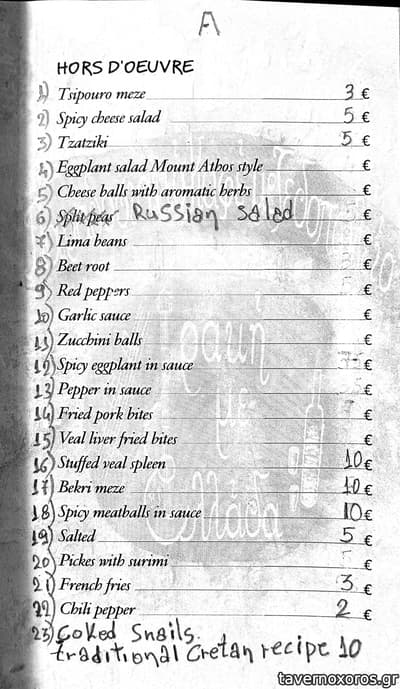 A
HORS D'OEUVRE
1) Tsipouro meze 3 €
2) Spicy cheese salad 5 €
3) Tzatziki 5 €
4) Eggplant salad Mount Athos style €
5) Cheese balls with aromatic herbs €
6) Split peas Russian salad €
7) Lima beans €
8) Beet root €
9) Red peppers €
10) Garlic sauce €
11) Zucchini balls €
12) Spicy eggplant in sauce €
13) Pepper in sauce €
14) Fried pork bites €
15) Veal liver fried bites €
16) Stuffed veal spleen 10 €
17) Bekri meze 10 €
18) Spicy meatballs in sauce 10 €
19) Salted 5 €
20) Pickes with surimi €
21) French fries 3 €
22) Chili pepper 2 €
23) Coked Snails.
traditional Cretan recipe 10
tavernoxoros.gr